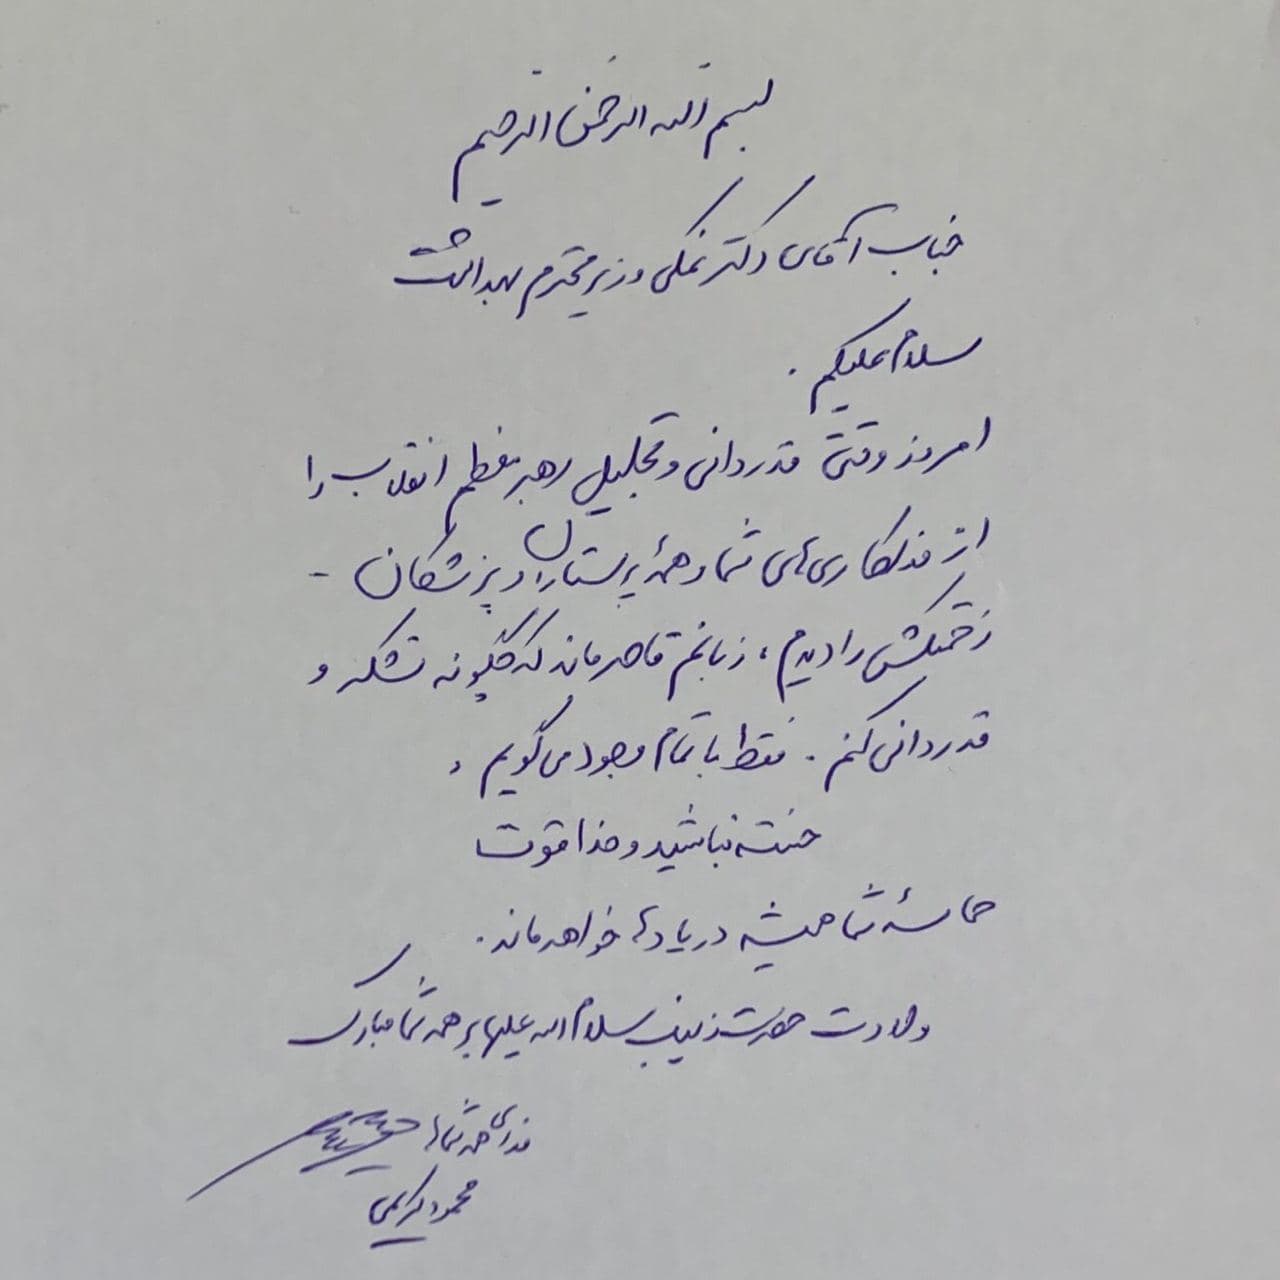 بسم الله الرحمن الرحیم
جناب آقای دکتر نمکی وزیر محترم بهداشت
سلام علیکم.
امروز وقتی قدردانی و تجلیل رهبر معظم انقلاب را
از فداکاری‌های شما و همهٔ پرستاران و پزشکان -
زحمتکش را دیدم، زبانم قاصر ماند که چگونه تشکر و
قدردانی کنم. فقط با تمام وجود می‌گویم،
خسته نباشید و خدا قوت
حماسهٔ شما همیشه در یادها خواهد ماند.
ولادت حضرت زینب سلام الله علیها بر همه شما مبارک
فدای همه شما
محمود کریمی